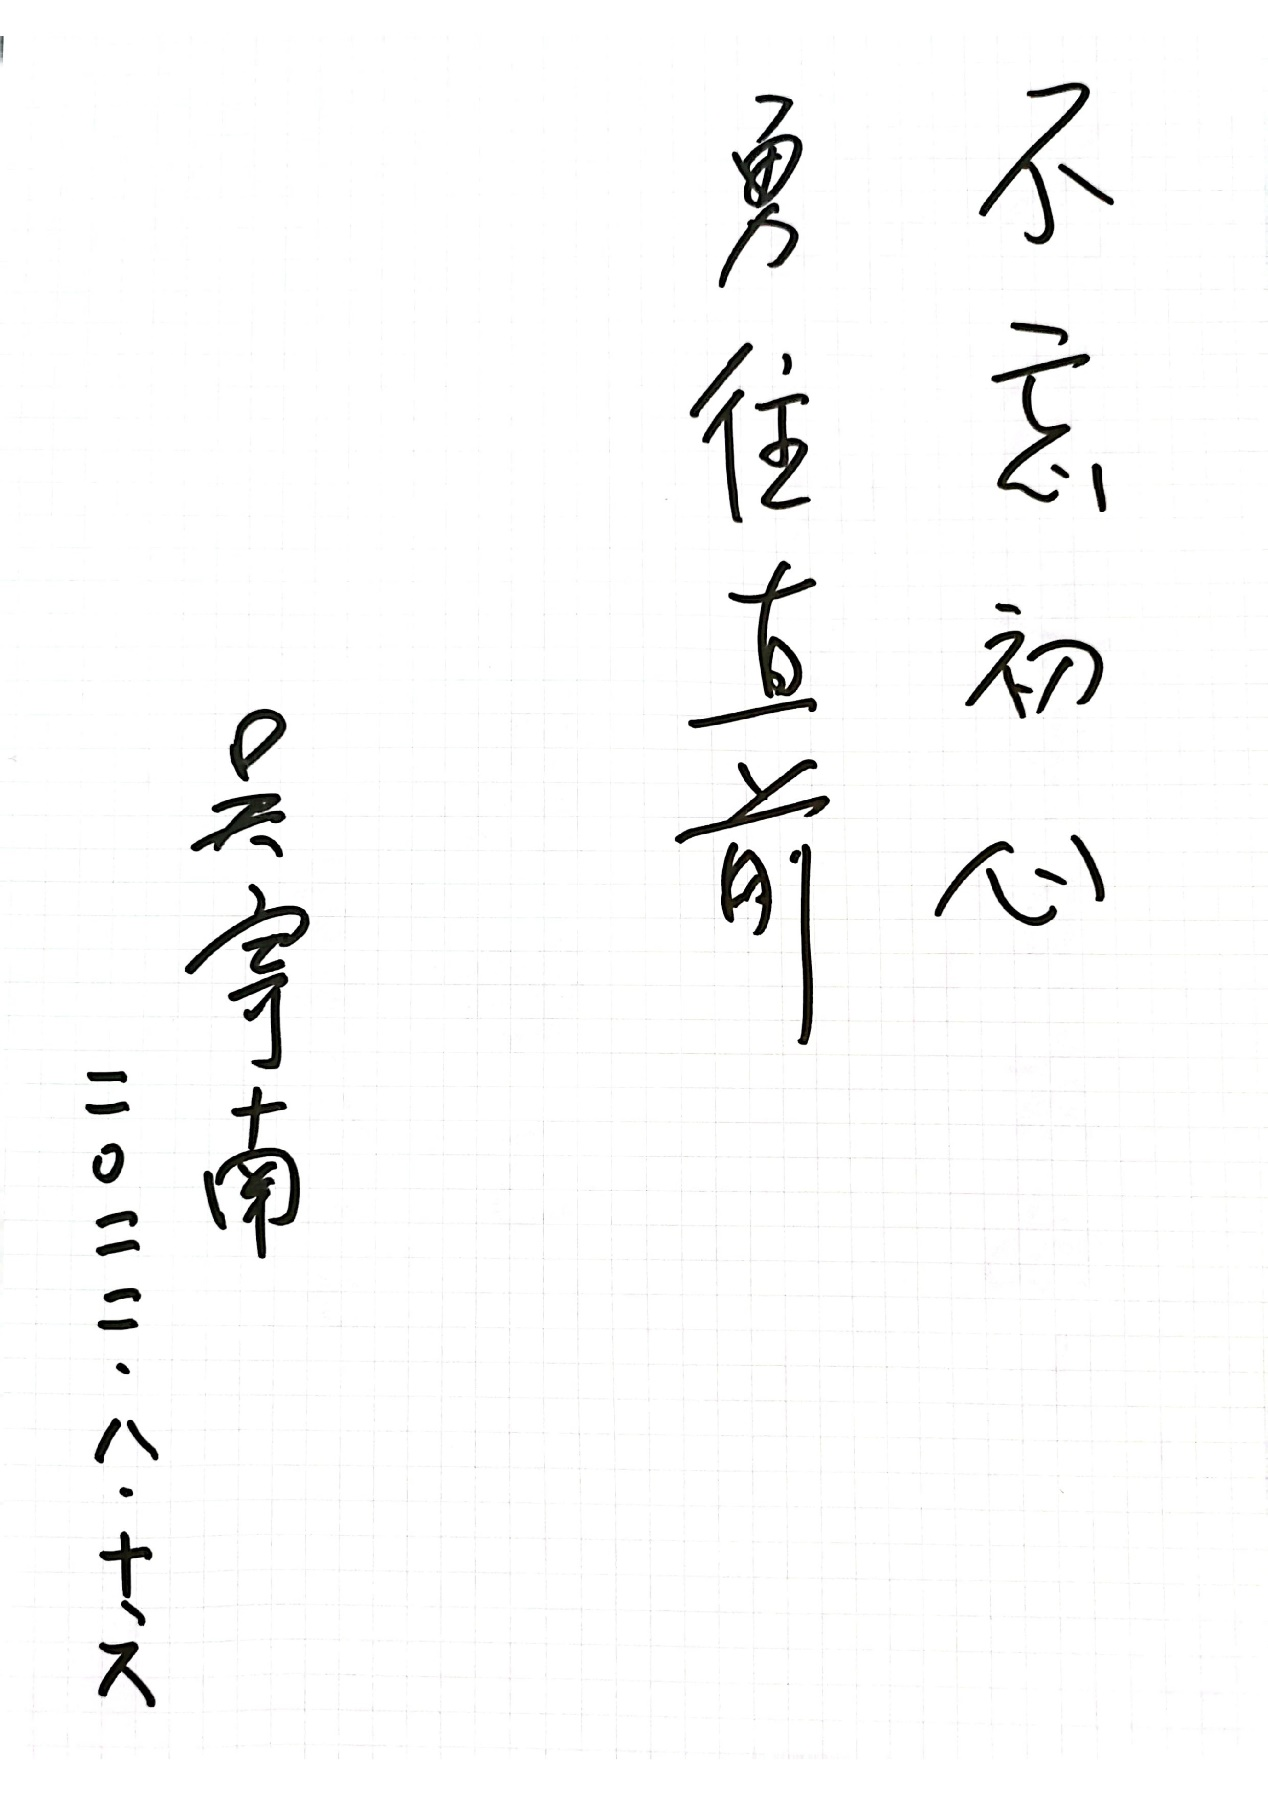 不忘初心
勇往直前
吴宁南
二〇二二·八·十六